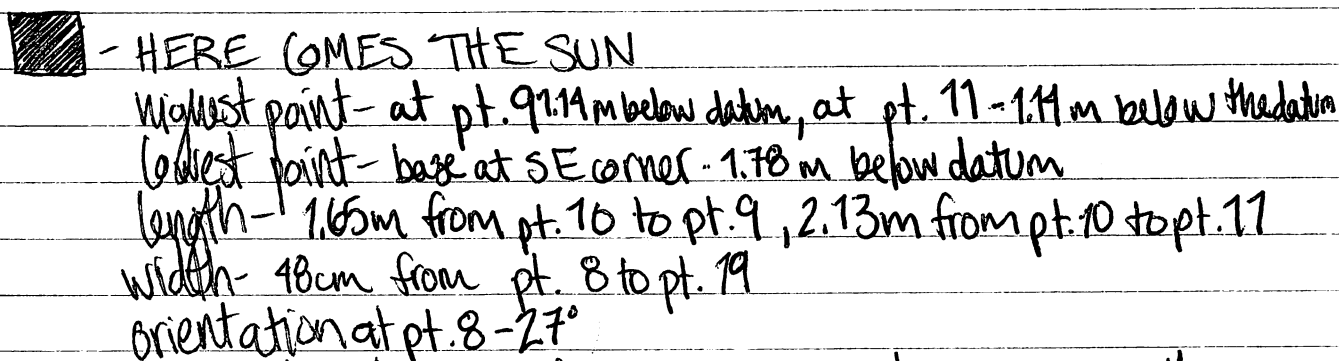 - HERE COMES THE SUN
highest point - at pt. 9 1.14 m below datum, at pt. 11 - 1.14 m below the datum
lowest point - base at SE corner - 1.78 m below datum
length - 1.65m from pt. 10 to pt. 9, 2.13m from pt. 10 to pt. 11
width - 48cm from pt. 8 to pt. 19
orientation at pt. 8 - 27°